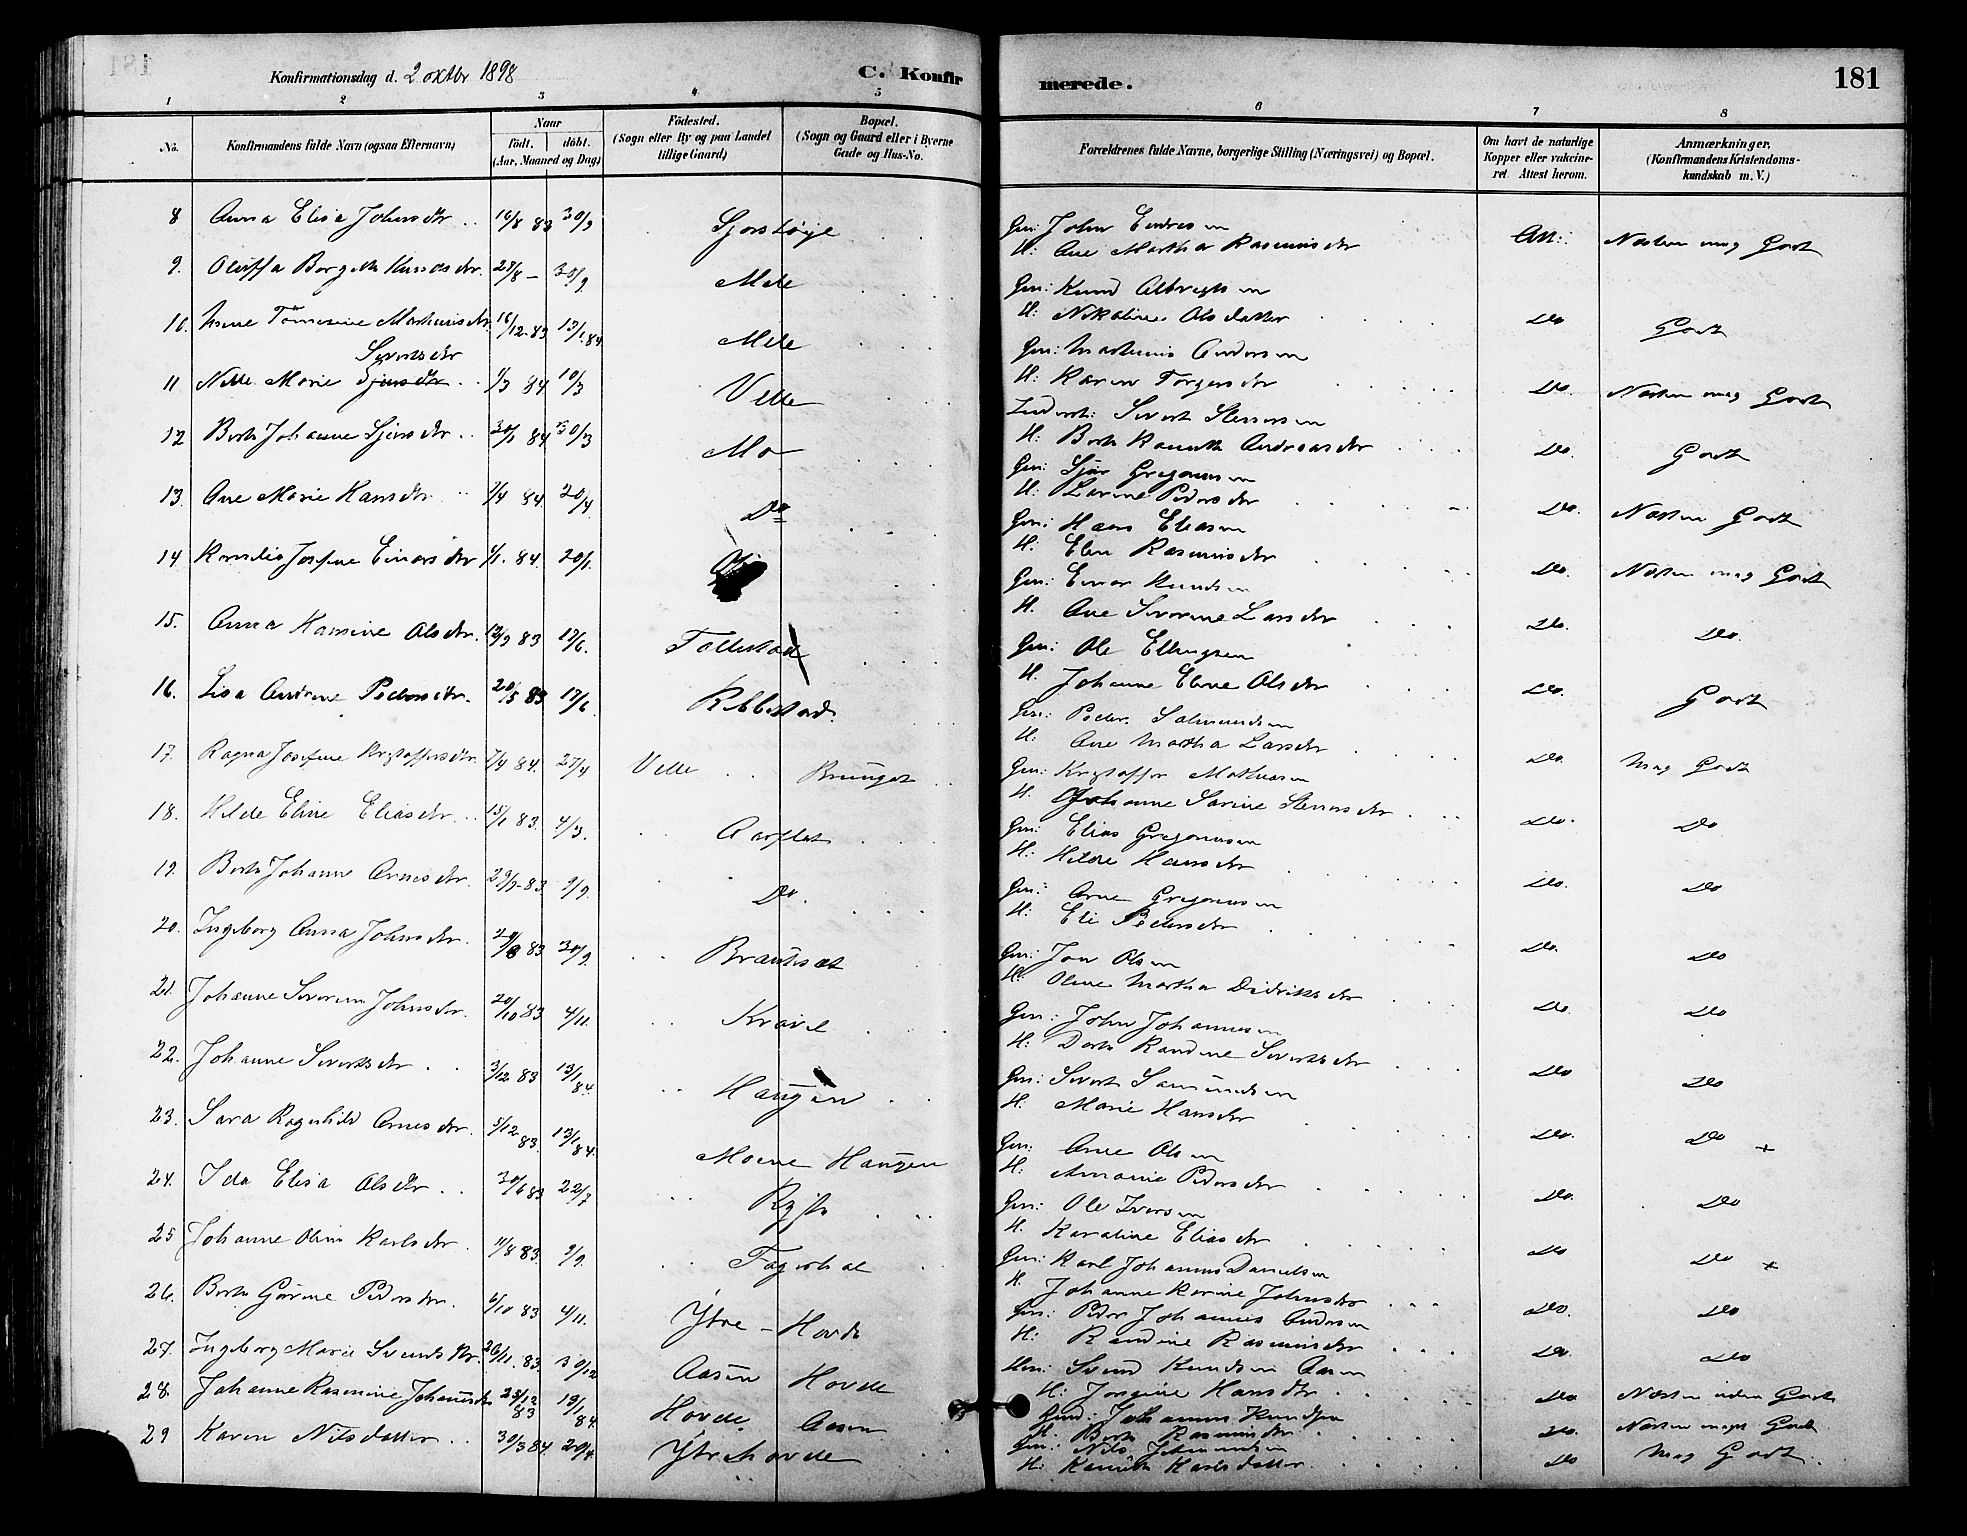 Konfirmationsdag d. 2 oktbr 1898
C. Konfirmerede.
181
1 2 3 4 5 6 7 8
No.
Konfirmandens fulde Navn (ogsaa Efternavn)
Naar
født. døbt.
(Aar, Maaned og Dag)
Födested.
(Sogn eller By og paa Landet
tillige Gaard)
Bopæl.
(Sogn og Gaard eller i Byerne
Gade og Hus-No.
Forældrenes fulde Navne, borgerlige Stilling (Næringsvei) og Bopæl.
Om havt de naturlige
Kopper eller vakcine-
ret Attest herom.
Anmærkninger,
(Konfirmandens Kristendoms-
kundskab m. V.)
8 Anna Elisa Johnsdtr. 16/8 83 30/9
Gm: John Endresen
H: Ane Martha Rasmusdtr Att: Næsten meg Godt
9. Oluffa Bergitte Knudsdtr. 28/8 – 30/9 Mele
Gm: Knud Albregtsen
H: Nikoline Olsdatter Do Godt
10. Tomesine Martinusdtr 16/12 83 13/1 84 Mele
Gm: Martinus Andersen
H: Karen Torgersdtr Do. Næsten meg Godt
Sivertsdtr
11 Nille Marie 1/3 84 10/3 Velle
Inderst: Sivert Steffensen
H: Berte Knutte Andreasdtr Do. Godt
12 Berte Johanne Sjursdtr 30/1 84 30/3 Mo
Gm: Sjur Gregoriusen
H: Larine Pedersdtr Do. Næsten Godt
13. Ane Marie Hansdtr 7/4 84 20/4 Do
Gm: Hans Eliasen
H: Elen Rasmusdtr Do. Næsten meg Godt
14 Kornelia Josefine Einarsdtr 4/1. 84. 20/1.
Gm: Einar Knudsen
H. Ane Severine Larsdtr Do. Do.
15. Anna Hansine Olsdtr. 83 17/6. Follestad
Gm: Ole Ellingsen
H. Johanne Elene Olsdtr Do. Godt
16. Lisa Andrine Pedersdtr. 20/5 83 17/6 Ribbestad.
Gm: Peder Salmundsen
H. Ane Martha Larsdtr Do. Meg Godt
17. Ragna Josefine Kristoffersdtr. 7/4 84. 27/4 Velle Bruuget
Gm: Kristoffer Mathiasen
H. Johanne Sarine Steffensdtr Do. Do
18. Hilde Eline Eliasdtr. 15/1 83. 4/3. Aarflat
Gm: Elias Gregoriusen
H: Hilde Hansdtr Do. Do
19. Berte Johanne Arnesdtr. 83 9/9. Do.
Gm: Arne Gregoriusen
H: Eli Pedersdtr Do. Do
20. Ingeborg Anna Johnsdtr. 20/8 83 30/9. Brautaset
Gm: Jon Olsen
H: Oline Martha Didriksdtr Do. Do
21. Johanne Severine Johnsdtr. 20/10 83 4/11. Krøvel
Gm: John Johannesen
H. Dorte Randine Sivertsdtr Do Do
22. Johanne Sivertsdtr. 3/12 83 13/1 84. Haugen
Gm: Sivert Samundsen
H. Marie Hansdtr Do. Do +
23. Sara Ragnhild Arnesdtr. 5/12 83. 13/1 84. Moene Haugen
Gm: Arne Olsen
H. Annanie Pedersdtr Do. Do
24. Ida Elisa Olsdtr. 30/6 83 22/7 Ryste
Gm: Ole Iversen
H. Karoline Eliasdtr Do Do +
25 Johanne Oline Karlsdtr. 11/8 83. 9/9. Fagerhol
Gm: Karl Johannes Danielsen
H. Johanne Karine Johnsdtr Do. Do
26. Berte Gurine Pedersdtr. 6/10 83 4/11. Ytre-Hovde
Gm: Peder Johannes Andersen
H. Randine Rasmusdtr Do Do
27. Ingeborg Marie Svendsdtr. 26/11. 83. 30/12 Aasen Hovde
Svend Knudsen Aasen
H: Jorgine Hansdtr Do Næsten uden Godt
28. Johanne Rasmine Johannesdtr 25/12 83 13/1 84. Hovde Aasen
Johannes Knudsen
H. Berte Rasmusdtr Do. Næsten meget Godt
29 Karen Nilsdatter 30/3 84 20/4. Ytrehovde
Gm: Nils Johannessen
H: Kanutte Karlsdatter Do Meg Godt.